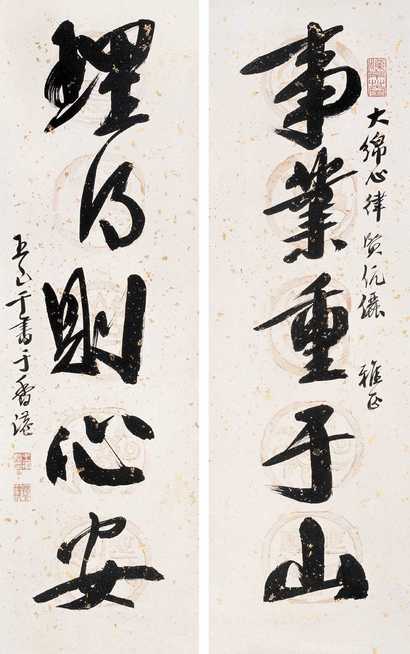 事業重于山
理得則心安
大綿心律賢伉儷 雅正
于書于香港